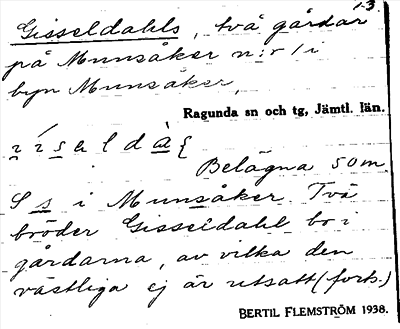 13.
Gisseldahls, två gårdar
på Munsåker n:r 1 i
byn Munsåker,
Ragunda sn och tg, Jämtl. län.
Belägna 50 m
S s i Munsåker. Två
bröder Gisseldahl bo i
gårdarna, av vilka den
västliga ej är utsatt (forts.)
BERTIL FLEMSTRÖM 1938.